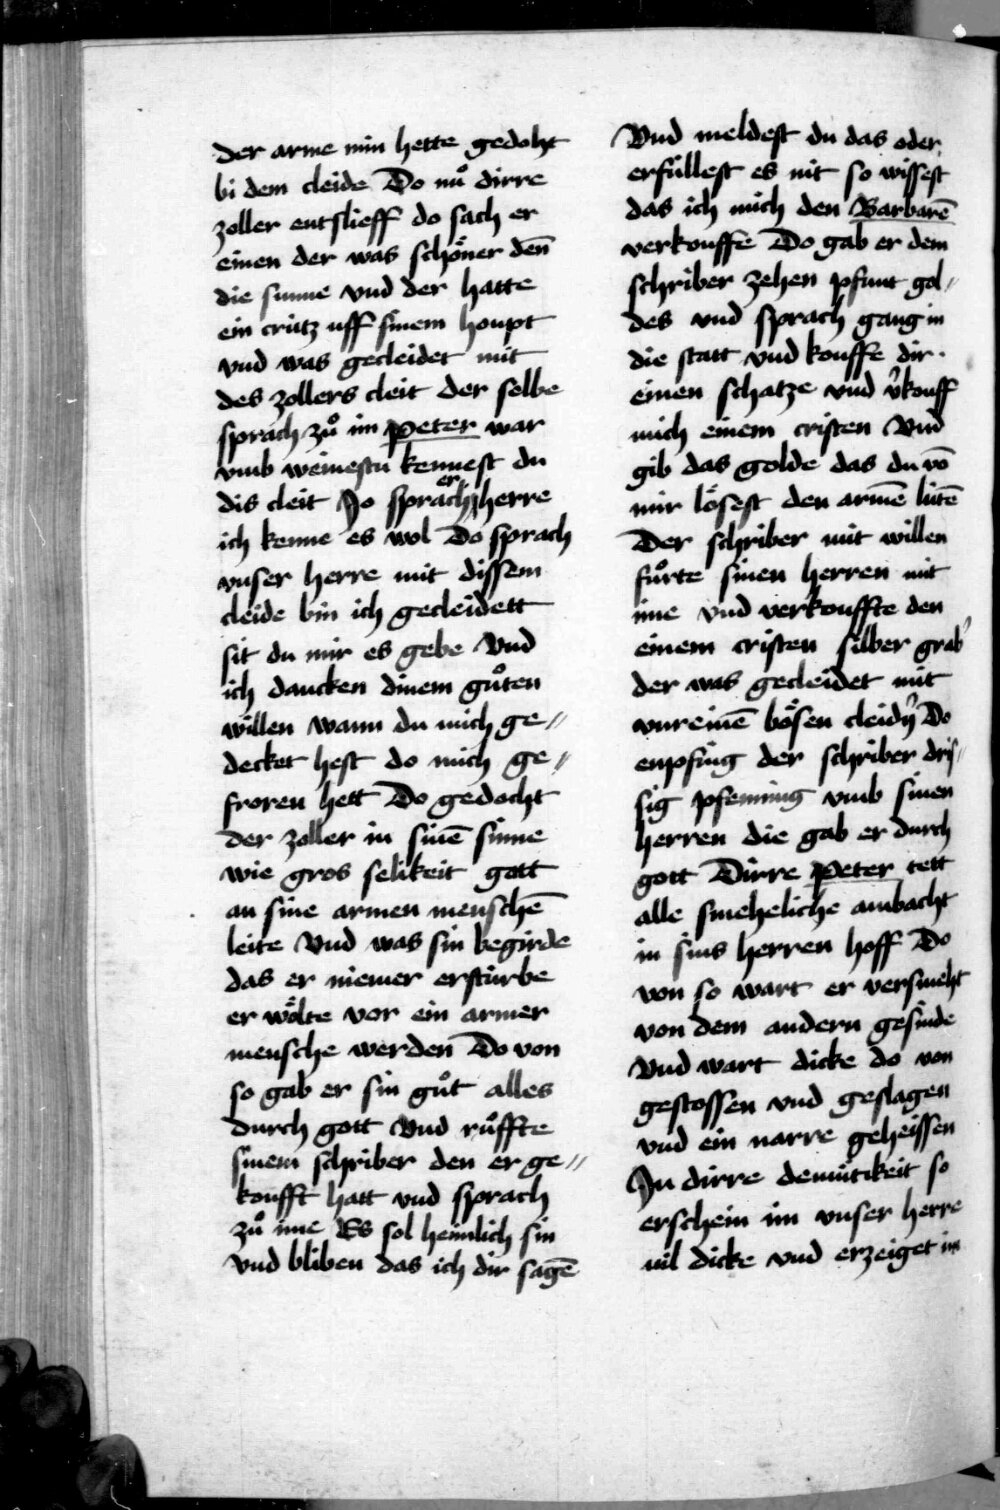 der arme min hette gedoht
bi dem cleide Do nuͦ dirre
zoller entslieff do sach er
einen der was schoͤner deñ
die sunne vnd der hatte
ein crutz uff sinem houpt
vnd was gecleidet mit
des zollers cleit der selbe
sprach zuͦ im Peter war
vmb weinestu kennest du
dis cleit Jo sprach er herre
ich kenne es wol Do sprach
vnser herre mit dissem
cleide bin ich gecleidett
sit du mir es gebe Vnd
ich dancken dinem guͦten
willen wann du mich ge⸗
decket hest do mich ge⸗
froren hett Do gedocht
der zoller in sinē sinne
wie gros selikeit gott
an sine armen menschē
leite Vnd was sin begirde
das er niemer ersturbe
er woͤlte vor ein armer
mensche werden Do von
so gab er sin guͦt alles
durch gott Vnd ruͦffte
sinem schriber den er ge⸗
koufft hatt vnd sprach
zuͦ ime Es sol heimlich sin
vnd bliben das ich dir sagē
Vnd meldest du das oder
erfúllest es nit so wissest
das ich mich den Barbarē
verkouffe Do gab er dem
schriber zehen pfunt gol⸗
des vnd sprach gang in
die statt vnd kouffe dir
einen schatze vnd v̾kouff
mich einem cristen Vnd
gib das golde das du vō
mir loͤsest den armē lútē
Der schriber mit willen
fuͦrte sinen herren mit
ime vnd verkouffte den
einem cristen silber grab̾
der was gecleidet mit
vnreinē boͤsen cleid̾n Do
enpfing der schriber dris⸗
sig pfenning vmb sinen
herren die gab er durch
gott Dirre Peter tett
alle smeheliche ambacht
in sins herren hoff Do
von so wart er versmeht
von dem andern gesinde
Vnd wart dicke do von
gestossen vnd geslagen
vnd ein narre geheissen
In dirre demútikeit so
erschein im vnser herre
vil dicke vnd erzeiget im